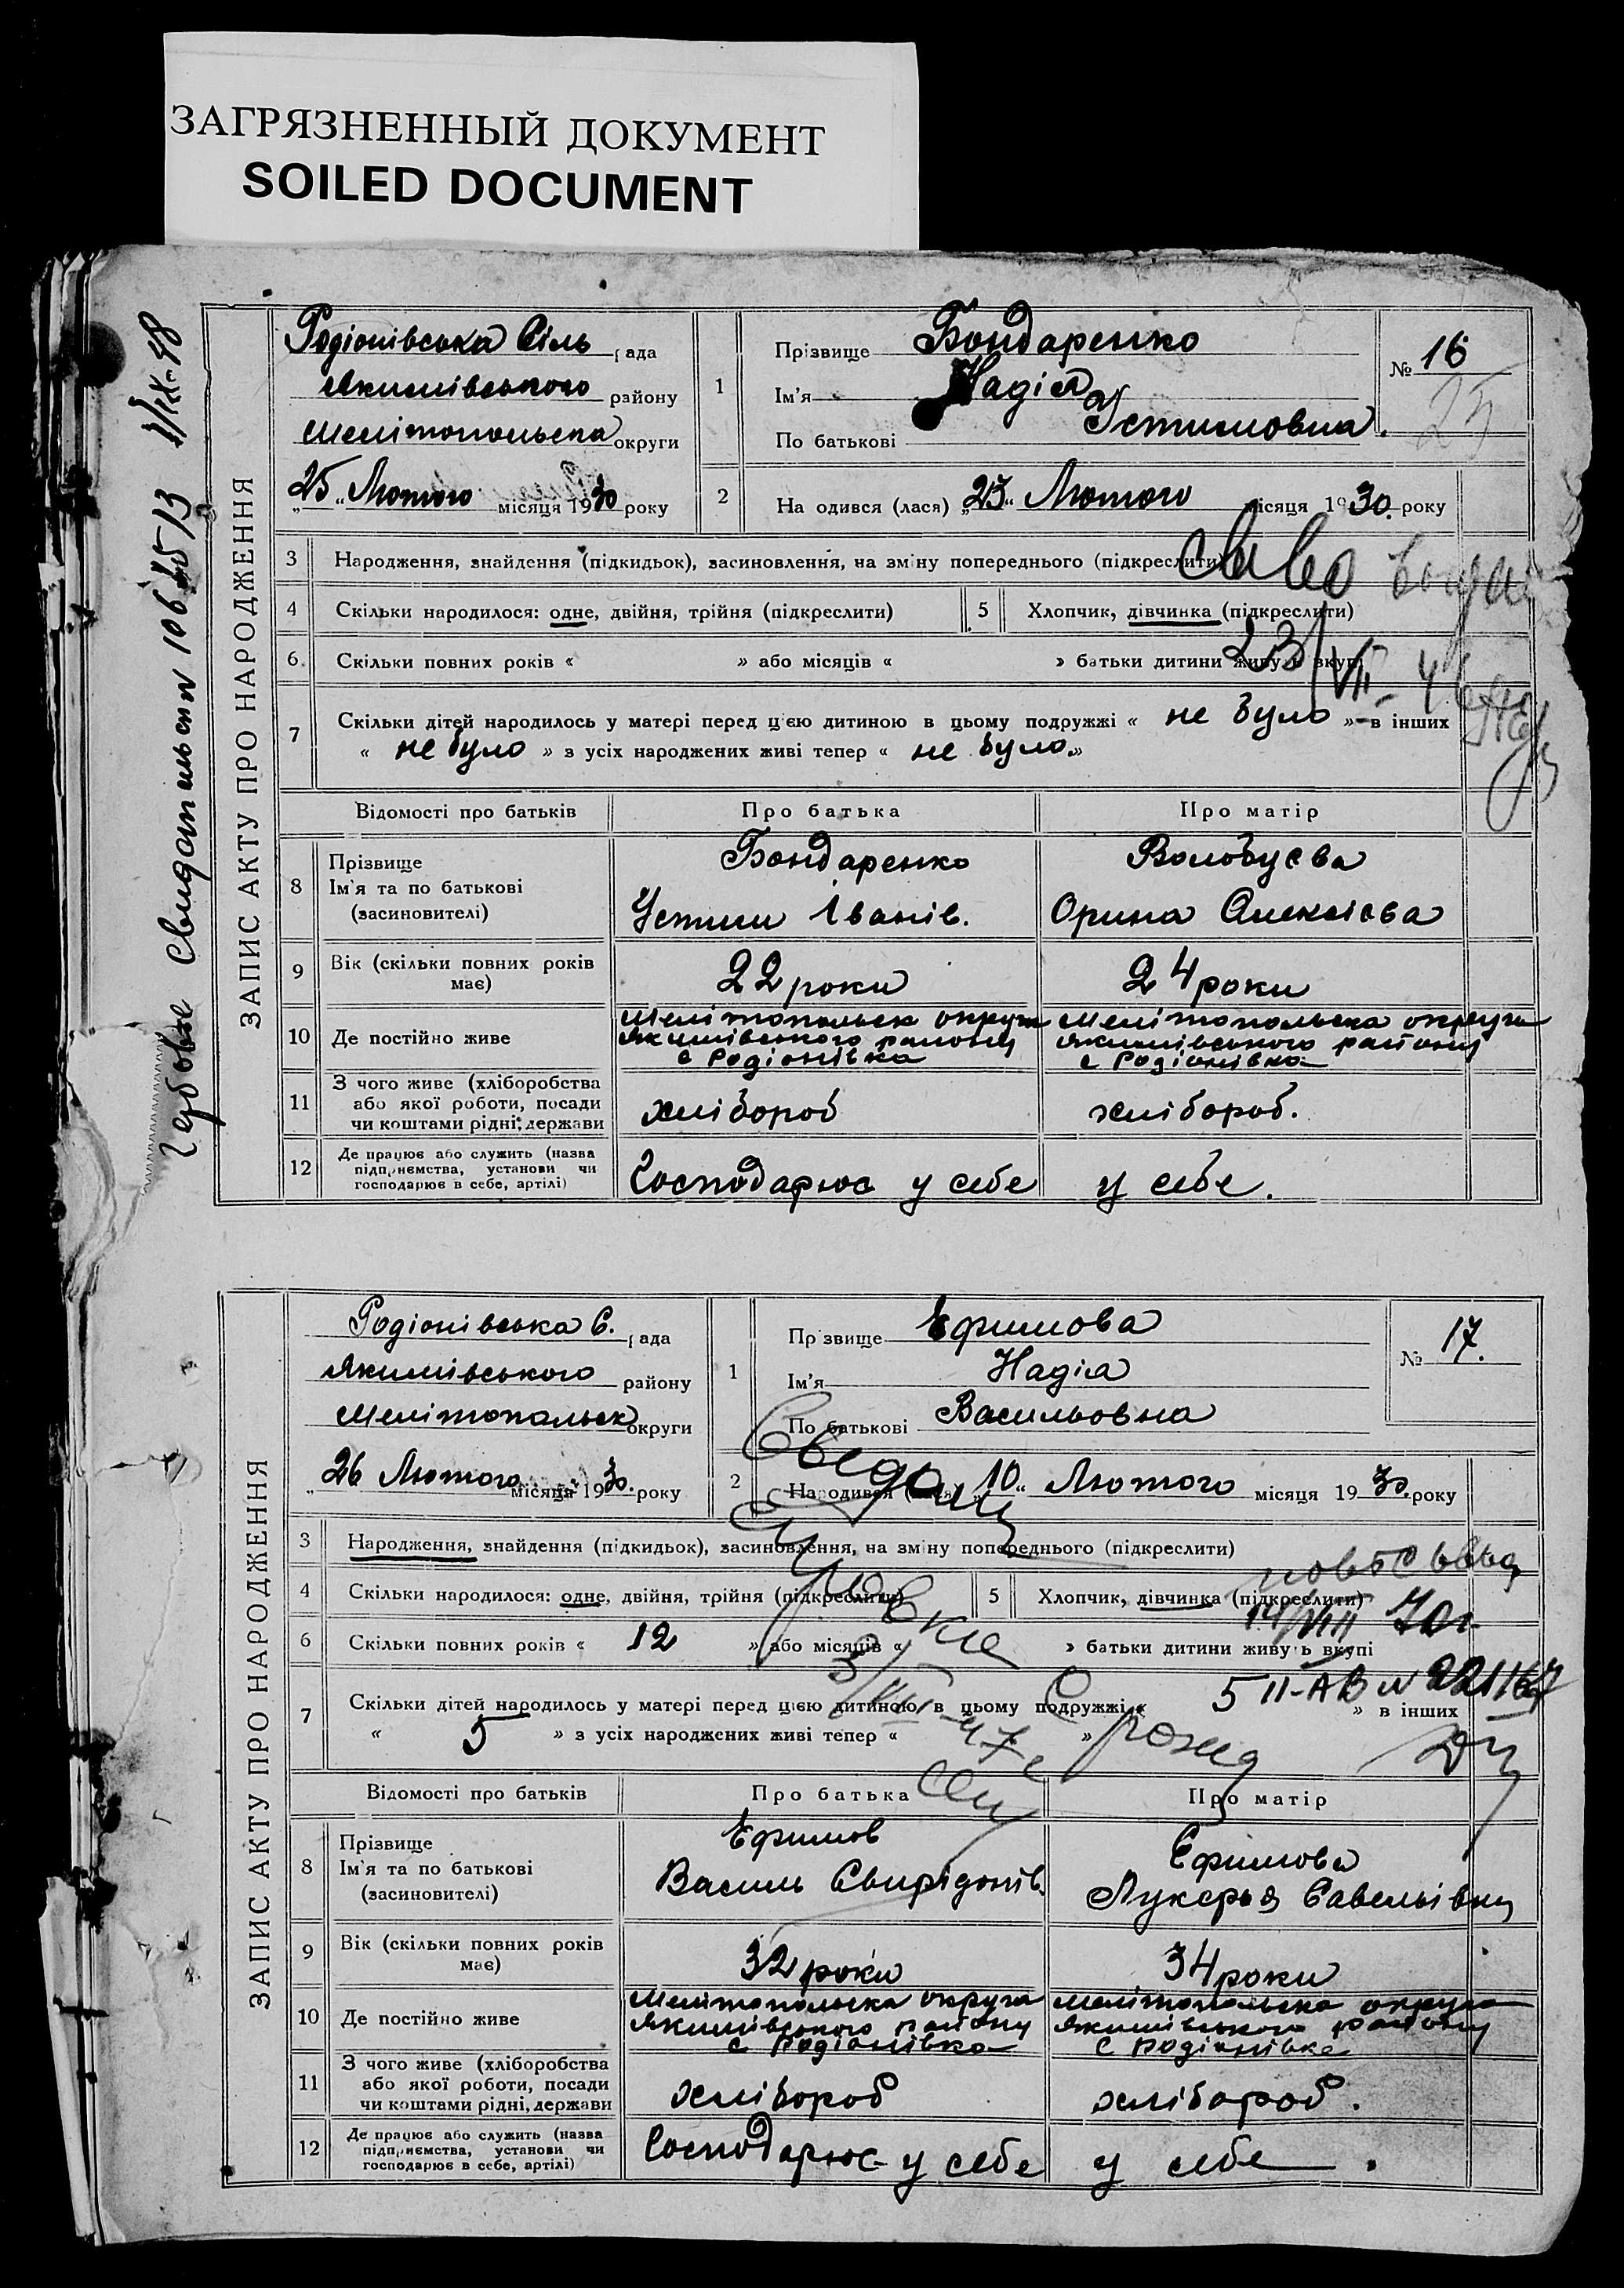 ЗАГРЯЗНЕННЫЙ ДОКУМЕНТ
SOILED DOCUMENT
ЗАПИС АКТУ ПРО НАРОДЖЕННЯ
Родіонівська Сіль рада
Якимівського району
Мелітопольска округи
„25“ Лютого місяця 1930 року
1
Прізвище Бондаренко
Ім'я Надія
По батькові Устимовна.
№ 16
25
2
На одився (лася) „23“ Лютого місяця 1930. року
3 Народження, знайдення (підкидьок), засиновлення, на зміну попереднього (підкреслити)
4 Скільки народилося: одне, двійня, трійня (підкреслити)
5 Хлопчик, дівчинка (підкреслити)
6. Скільки повних років « » або місяців « » батьки дитини живуть вкупі
23/VII-46
7 Скільки дітей народилось у матері перед цією дитиною в цьому подружжі « не було » в інших
« не було » з усіх народжених живі тепер « не було.»
Відомості про батьків Про батька Про матір
8 Прізвище
Ім'я та по батькові
(засиновителі)
Бондаренко
Устим Іванів.
Волобуєва
Орина Алексієва
9 Вік (скільки повних років має)
22 роки
24 роки
10 Де постійно живе
Мелітопольск округа
Якимівського району
с Родіонівка
Мелітопольска округа
Якимівського району
с Родіонівка
11 З чого живе (хліборобства
або якої роботи, посади
чи коштами рідні, держави
хлібороб
хлібороб.
12 Де працює або служить (назва
підприємства, установи чи
господарює в себе, артілі)
Господарює у себе
у себе.
ЗАПИС АКТУ ПРО НАРОДЖЕННЯ
Родіонівська С. рада
Якимівського району
Мелітопольск округи
„26 Лютого місяця 1930. року
1
Прізвище Ефимова
Ім'я Надія
По батькові Васильовна
№ 17.
2
Народився (лася) „10“ Лютого місяця 1930. року
3 Народження, знайдення (підкидьок), засиновлення, на зміну попереднього (підкреслити)
4 Скільки народилося: одне, двійня, трійня (підкреслити)
5 Хлопчик, дівчинка (підкреслити)
14/VIII 70г.
6 Скільки повних років « 12 » або місяців « » батьки дитини живуть вкупі
II-АВ №
7 Скільки дітей народилось у матері перед цією дитиною в цьому подружжі « 5 » в інших
« 5 » з усіх народжених живі тепер « »
Відомості про батьків Про батька Про матір
8 Прізвище
Ім'я та по батькові
(засиновителі)
Ефимов
Василь Свирідонів.
Ефимова
Лукерья Савельівна
9 Вік (скільки повних років має)
32 роки
34 роки
10 Де постійно живе
Мелітопольска округа
Якимівського району
с Родіонівка
Мелітопольска округа
Якимівського району
с Родіонівка
11 З чого живе (хліборобства
або якої роботи, посади
чи коштами рідні, держави
хлібороб
хлібороб.
12 Де працює або служить (назва
підприємства, установи чи
господарює в себе, артілі)
Господарює у себе
у себе.